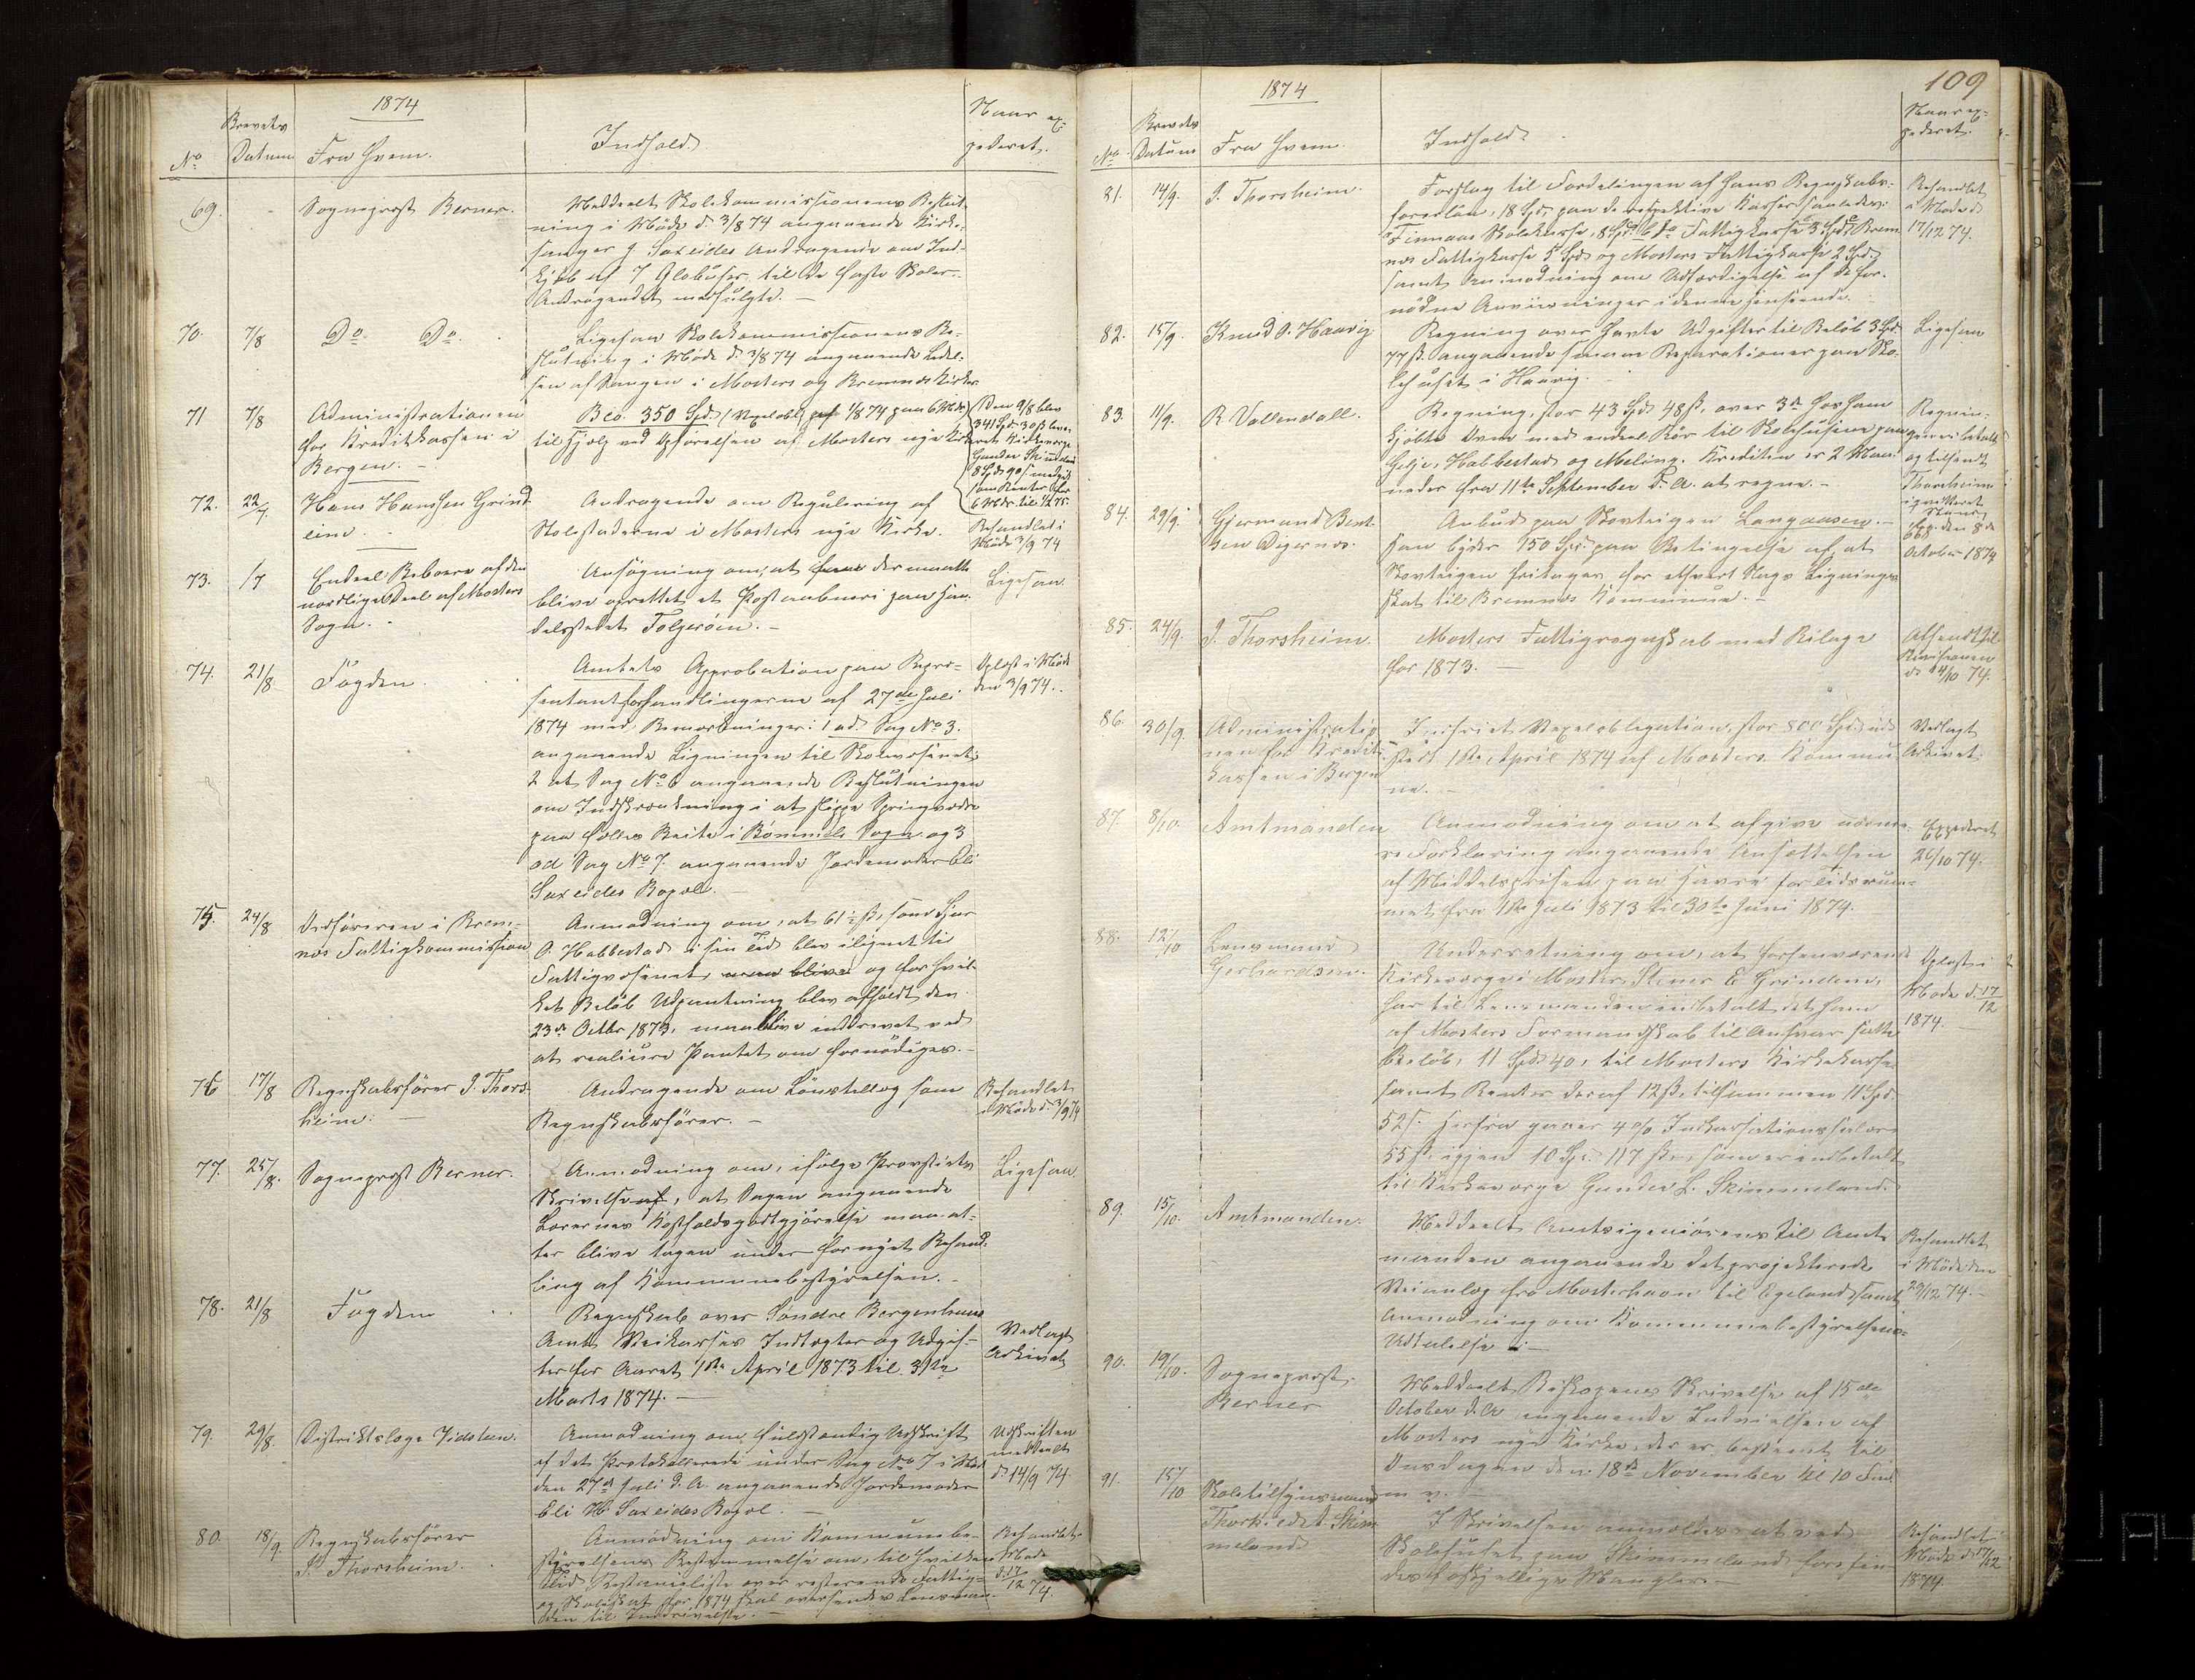 1874
No
Brevets Datum
Fra Hvem.
Indhold.
Naar expederet.
69.
Sogneprest Berner.
Meddeelt Skolekommissionens Beslut-
ning i Møde d. 3/8 74 angaaende Kirke-
sanger J. Saxeides Andragende om Ind-
kjøb af 7 Globuser til de faste Skoler.
Andragendet medfulgte. —
70.
7/8
Do Do
Ligesaa Skolekommissionens Be-
slutning i Møde d. 3/8 74 angaaende Ledel-
sen af Sangen i Mosters og Bremnæs Kirker
71
7/8
Administrationen
for Kreditkassen i
Bergen. —
Bev. 350 Spd. (Vexelobl.) 1/8 74 paa 6 Mdr
til Hjælp ved Opførelsen af Mosters nye Kirke
Den 9/8 blev
341 Spd. 30 ß leve-
ret Kirkeværge
Gunder Skimmeland
8 Spd. 90 ß medgik
som Renter for
6 Mdr. til 1/2 75.
72.
22/7
Hans Hansen Grind-
eim.
Andragende om Regulering af
Stolestaderne i Mosters nye Kirke.
Behandlet i
Møde 3/9 74
73.
/7
Endeel Beboere af den
nordlige Deel af Mosters
Sogn. -
Ansøgning om, at der maatte
blive oprettet et Postaabneri paa Han-
delsstedet Folgerøen. —
Ligesaa.
74.
21/8
Fogden.
Amtets Approbation paa Repræ-
sentantforhandlingerne af 27de Juli
1874 med Bemærkninger: 1 ad. Sag No 3.
angaaende Ligningen til Skolevæsenet;
2 at Sag No 6 angaaende Beslutningen
om Indskrænkning i at slippe Springvædre
paa fælles Beite i Rømmels Sogn og 3
ad Sag No 7. angaaende Jordemoder Eli
Saxeides Bopæl. —
Oplæst i Møde
den 3/9 74.
75.
24/8
Ordføreren i Brem-
næs Fattigkommission
Anmodning om, at 61½ ß, som Sjur
O. Habbestad i sin Tid blev ilignet til
Fattigvæsenet, maa blive og for hvil-
ket Beløb Udpantning blev afholdt den
23de Octbr. 1873, maa blive inddrevet ved
at realisere Pantet om fornødiges. —
76
17/8
Regnskabsfører J. Thors-
heim. —
Andragende om Lønstillæg som
Regnskabsfører. —
Behandlet
i Møde d. 3/9 74
77.
25/8.
Sogneprest Berner.
Anmodning om, ifølge Provstiets
Skrivelse af, at Sagen angaaende
Lærernes Kostholdsgodtgjørelse maa at-
ter blive tagen under fornyet Behand-
ling af Kommunebestyrelsen. —
Ligesaa.
78.
21/8
Fogden
Regnskab over Søndre Bergenhuus
Amts Veikasses Indtægter og Udgif-
ter for Aaret 1ste April 1873 til 31te
Marts 1874. —
Vedlagt
Arkivet
79.
29/8.
Distriktslæge Vidsteen.
Anmodning om fuldstændig Udskrift
af det Protokollerede under Sag No 7 i Møde
den 27de Juli d. A. angaaende Jordemoder
Eli H. Saxeides Bopæl. —
Udskriften
meddeelt
d. 14/9 74.
80.
18/9.
Regnskabsfører
J. Thorsheim.
Anmodning om Kommunebe-
styrelsens Bestemmelse om, til hvilken
Tid Restanseliste over resterende Fattig-
og Skoleskat for 1874 skal oversendes Lensman-
den til Inddrivelse. —
Behandlet
i Møde
d. 17/12 74.
109
1874
No
Brevets Datum
Fra Hvem.
Indhold.
Naar expederet.
81.
14/9.
J. Thorsheim.
Forslag til Fordelingen af hans Regnskabs-
førerløn, 18 Spd., paa de respektive Kasser saaledes:
Finnaas Skolekasse, 8 Spd., do Fattigkasse 3 Spd., Brem-
næs Fattigkasse 5 Spd. og Mosters Fattigkasse 2 Spd.
samt Anmodning om Udfærdigelse af de for-
nødne Anviisninger i denne Henseende.
Behandlet
i Møde d.
17/12 74.
82.
15/9.
Knud O. Haavig
Regning over havte Udgifter til Beløb 3 Spd.
77 ß. angaaende smaae Reparationer paa Sko-
lehuset i Haavig. -
Ligesaa
83.
11/9.
R Vallendall.
Regning, stor 43 Spd. 48 ß, over 3de hos ham
kjøbte Ovne med endeel Rør til Skolehusene paa
Gilje, Habbestad og Meling. Krediten er 2 Maa-
neder fra 11te September d. A. at regne. -
Regnin-
gen er betalt
og tilsendt
Thorsheim
i qvitteret
Stand,
84.
29/9.
Gjermund Bent-
sen Digernæs.
Anbud paa Skovteigen Langaasen. —
Han byder 150 Spd. paa Betingelse af, at
Skovteigen fritages for ethvert Slags Lignings-
skat til Bremnæs Kommune. —
Exp. den 8de
October 1874
85.
24/9.
J. Thorsheim.
Mosters Fattigregnskab med Bilage
for 1873. —
Afsendt til
Revisionen
d. 14/10 74.
86.
30/9.
Administratio-
nen for Kredit-
kassen i Bergen
Indfriet Vexelobligation, stor 800 Spd., ud-
stædt 1ste April 1874 af Mosters Kommu-
ne. —
Vedlagt
Arkivet.
87.
8/10.
Amtmanden
Anmodning om at afgive nærme-
re Forklaring angaaende Ansættelsen
af Middelsprisen paa Havre for Tidsrum-
met fra 1ste Juli 1873 til 30te Juni 1874.
Expederet
26/10 74.
88.
12/10
Lensmand
Gerhardsen.
Underretning om, at forhenværende
Kirkeværge i Moster, Stener E Grindem,
har til Lensmanden indbetalt det ham
af Mosters Formandskab til Ansvar satte
Beløb, 11 Spd. 40, til Mosters Kirkekasse
samt Renter deraf 12 ß, tilsammen 11 Spd.
52 ß. Herfra gaaer 4 % Inkassationssalær
55 ß. igjen 10 Spd. 117 ß., som er indbetalt
til Kirkeværge Gunder L. Skimmeland.
Oplæst i
Møde d. 17/12
1874.
89.
15/10.
Amtmanden.
Meddeelt Amtsigeniørens til Amt-
manden angaaende det projekterede
Veianlæg fra Mosterhavn til Egeland samt
Anmodning om Kommunebestyrelsens
Udtalelse —
Behandlet
i Møde den
29/12 74. -
90.
19/10.
Sogneprest
Berner
Meddeelt Biskopens Skrivelse af 15de
October d. A angaaende Indvielsen af
Mosters nye Kirke, der er bestemt til
Onsdagen den 18de November Kl 10 Form.
m. v. —
91.
15/10
Skoletilsynsmand
Thorb. Skim-
meland
I Skrivelsen anmeldes at ved
Skolehuset paa Skimmeland forefin-
des forskjellige Mangler.
Behandlet i
Møde d. 17/12
1874.